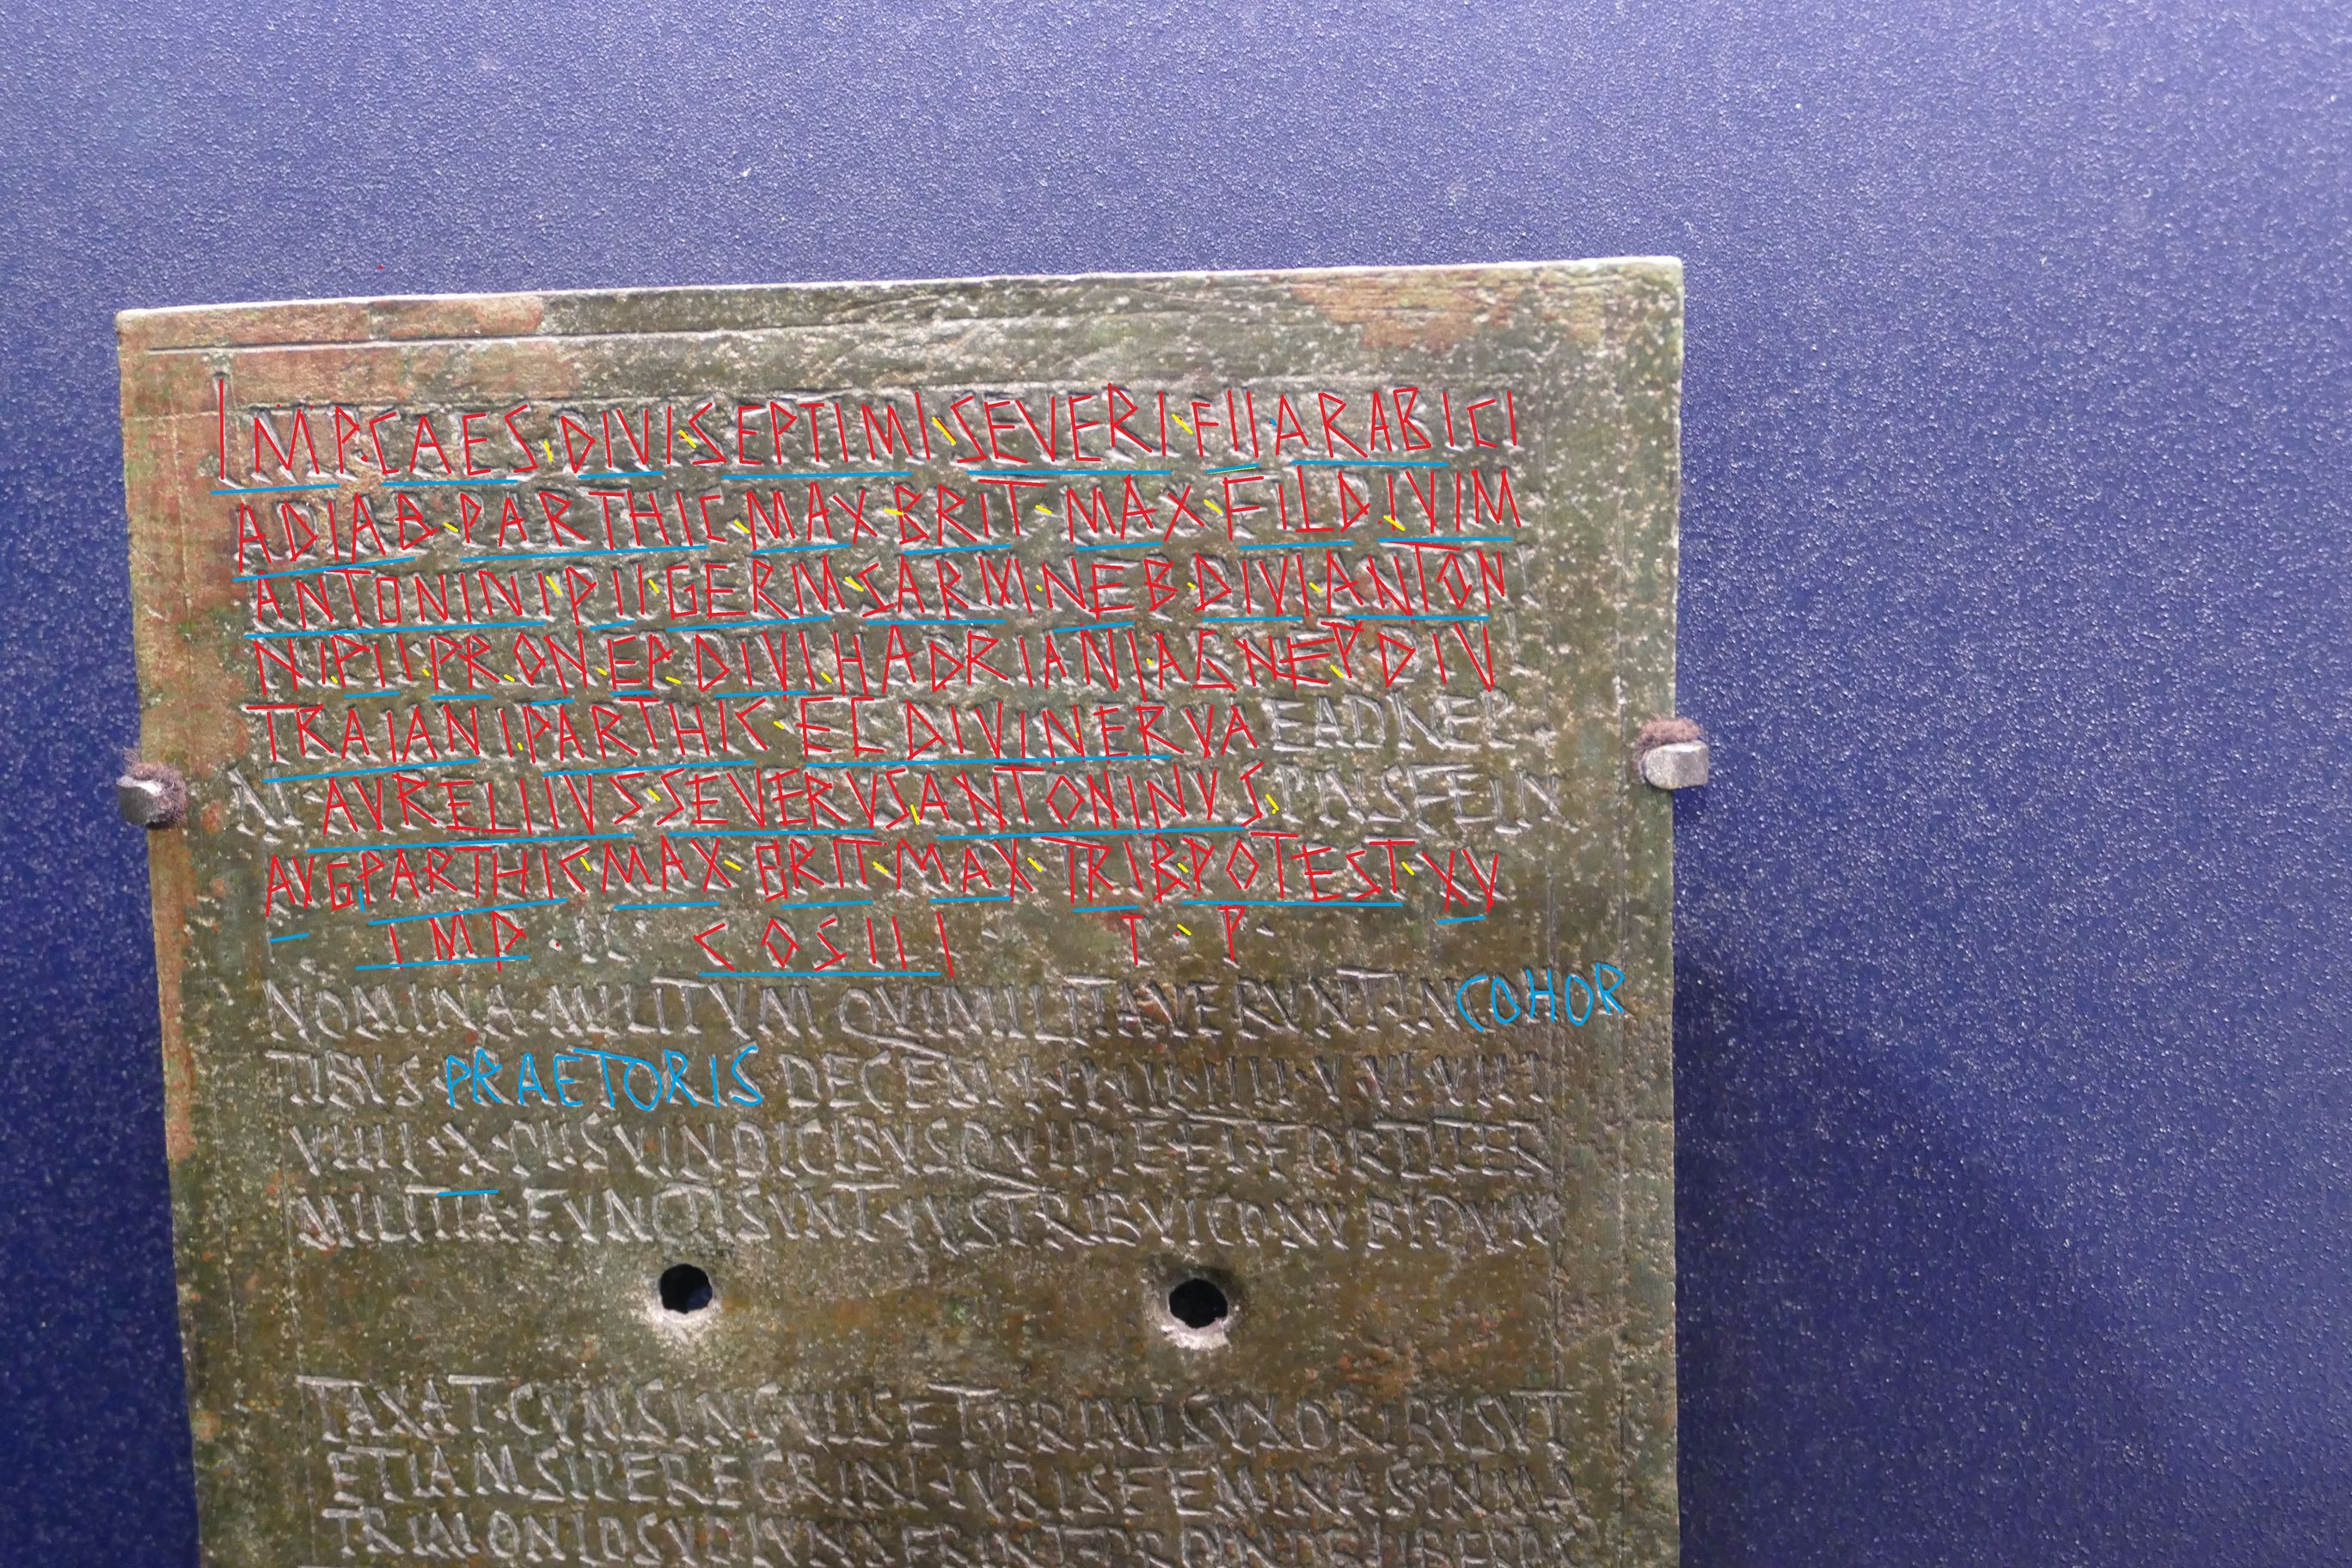 IMP·CAES·DIVI·SEPTIMI·SEVERI·FII ARABICI
ADIAB·PARTHIC·MAX·BRIT·MAX·FIL DIVI M
ANTONINI·PII·GERM·SARM·NEB·DIVI·ANTON
NI·PII·PR·ON·EP·DIVI·HADRIANI·AGNEP·DIV
TRAIANI·PARTHIC·ET DIVI NERVAE ADNEP·
M·AVRELLIVS·SEVERVS·ANTONINVS·PIVS FELIX
AVG PARTHIC·MAX·BRIT·MAX·TRIB·POTEST·XV
IMP·II COSIII P·P·
NOMINA·MILITVM QVI MILITAVERVNT IN COHOR
TIBVS·PRAETORIS DECEM·I·II·III·IIII·V·VI·VII
VIIII·X·PIIS VINDICIBVS QVI PIE·ET·FORTITER
MILITIA·FVNCTI SVNT·IVS TRIBVI CONVBI DVM
TAXAT·CVM SINGVLIS ET PRIMIS VXORIBVS VT
ETIAM SI PEREGRINI·IVRIS FEMINAS IN MA
TRIMONIO SVO